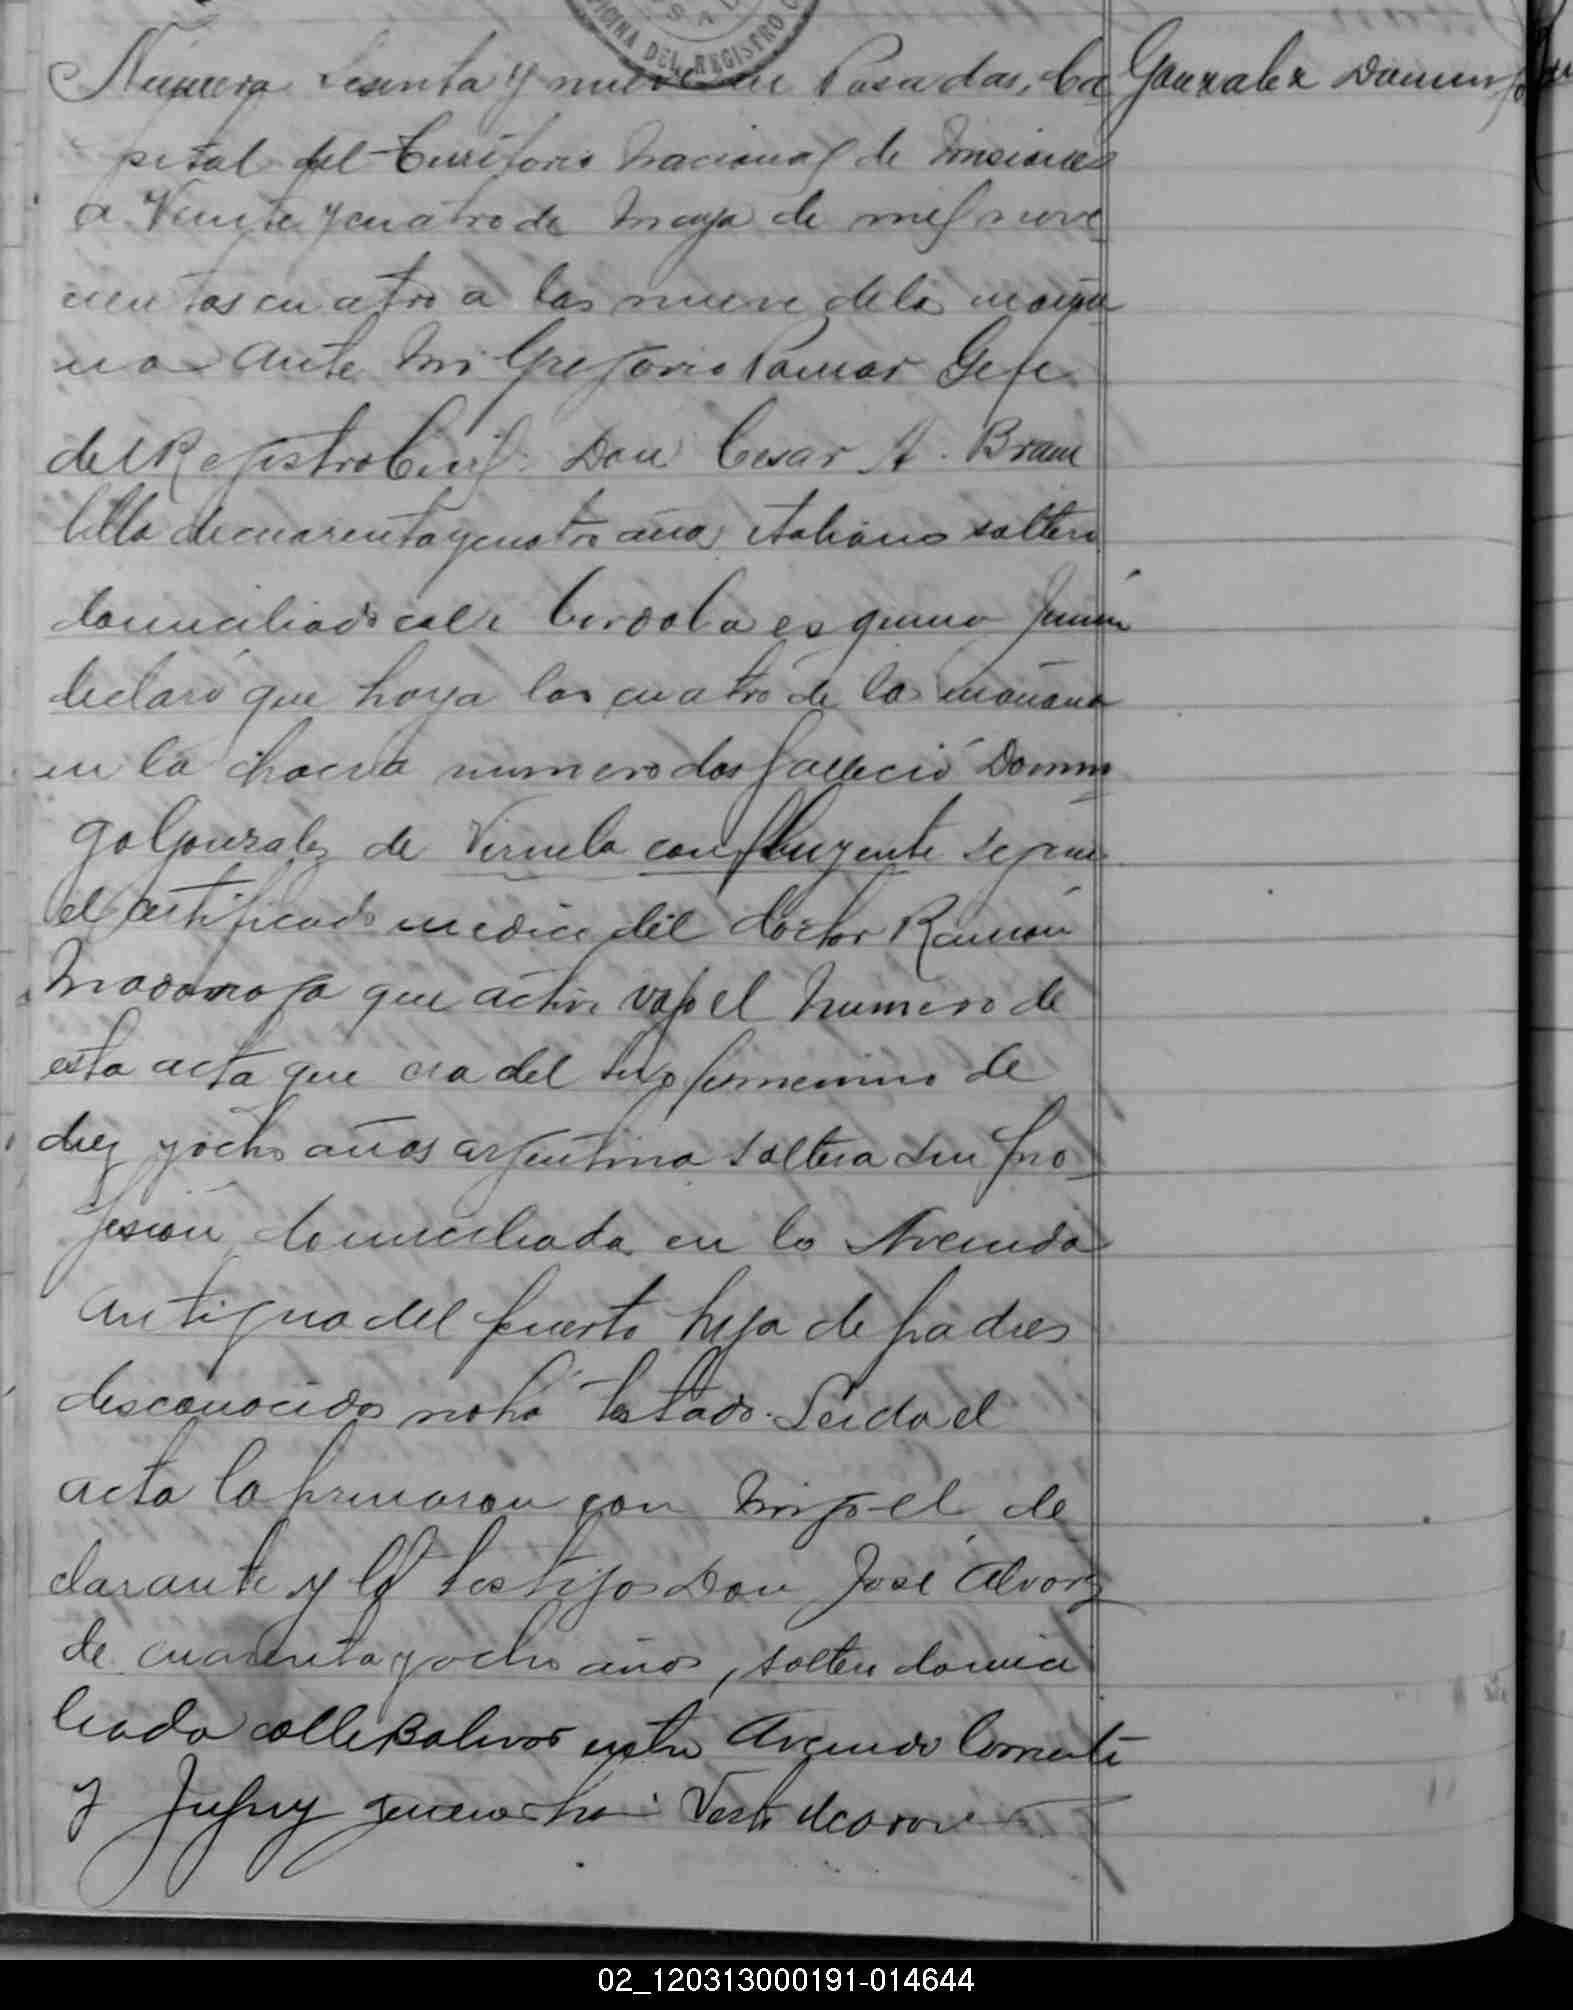 OFICINA DEL REGISTRO
Numero sesenta y nueve en Posadas, Ca
Gonzalez Domingo
pital del Territorio Nacional de Misiones
a Veinte y cuatro de Mayo de mil nove
cientos cuatro a las nueve de la maña
na ante Mi Gregorio Pomar Gefe
del Registro Civil: Don Cesar A. Bram
billa de cuarenta y cuatro años, italiano soltero
domiciliado calle Cordoba esquina Junin
declaró que hoy a las cuatro de la mañana
en la chacra numero dos falleció Domin
ga Gonzalez de Viruela confluyente segun
el certificado medico del doctor Ramón
Madariaga que archivo vajo el numero de
esta acta que era del sexo femenino de
diez y ocho años argentina soltera sin pro
fesión, domiciliada en la Avenida
antigua del puerto hija de padres
desconocidos no há testado. Leida el
acta la firmaron con migo el de
clarante y el testigo Don José Alvarez
de cuarenta y ocho años, soltero domici
liado calle Bolivar entre Avenida Corrientes
y Jujuy
02_120313000191-014644